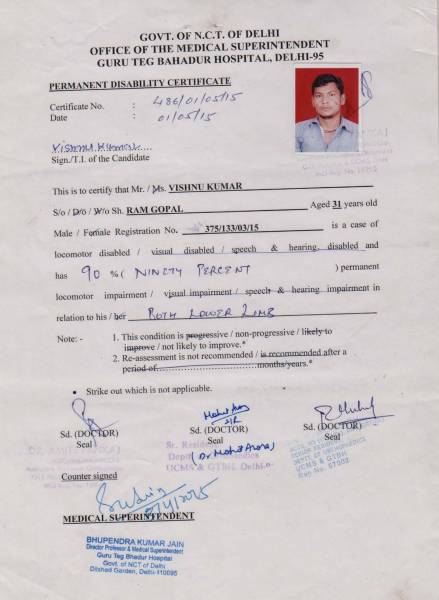 GOVT. OF N.C.T. OF DELHI
OFFICE OF THE MEDICAL SUPERINTENDENT
GURU TEG BAHADUR HOSPITAL, DELHI-95
PERMANENT DISABILITY CERTIFICATE
Certificate No. : 486/01/05/15
Date : 01/05/15
VISHNU KUMAR
Sign./T.I. of the Candidate
This is to certify that Mr. / Ms. VISHNU KUMAR
S/o / D/o / W/o Sh. RAM GOPAL Aged 31 years old
Male / Female Registration No. 375/133/03/15 is a case of
locomotor disabled / visual disabled / speech & hearing, disabled and
has 90 %( NINETY PERCENT ) permanent
locomotor impairment / visual impairment / speech & hearing impairment in
relation to his / her BOTH LOWER LIMB
Note: - 1. This condition is progressive / non-progressive / likely to
improve / not likely to improve.*
2. Re-assessment is not recommended / is recommended after a
period of months/years.*
• Strike out which is not applicable.
Sd. (DOCTOR) Sd. (DOCTOR) Sd. (DOCTOR)
Seal Seal Seal
(Dr Mohit Arora)
Sr. Resident
UCMS & GTBH, Delhi
DEPTT. OF ORTHOPAEDICS
UCMS & GTBH
Counter signed
MEDICAL SUPERINTENDENT
BHUPENDRA KUMAR JAIN
Director Professor & Medical Superintendent
Guru Teg Bhadur Hospital
Govt. of NCT of Delhi
Dilshad Garden, Delhi-110095